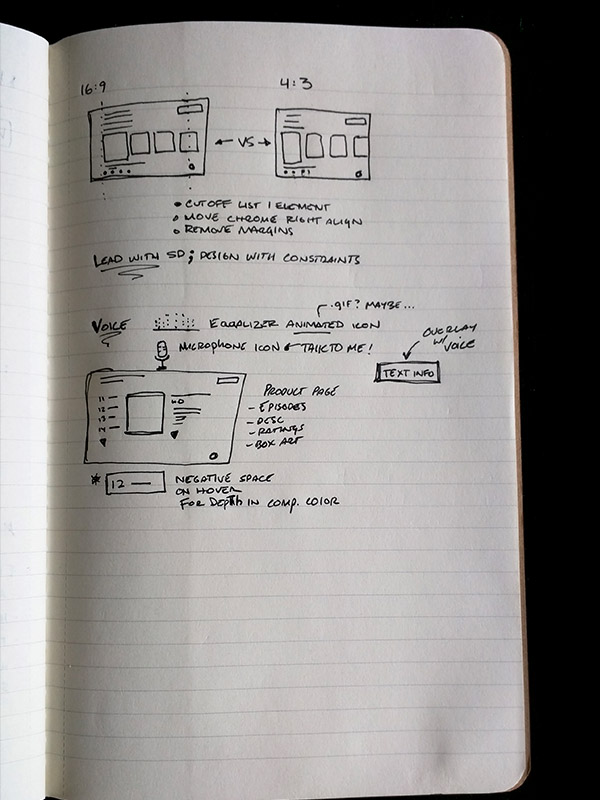 16:9
4:3
← VS →
• CUTOFF LIST 1 ELEMENT
• MOVE CHROME RIGHT ALIGN
• REMOVE MARGINS
LEAD WITH SD; DESIGN WITH CONSTRAINTS
.GIF? MAYBE...
VOICE EQUALIZER ANIMATED ICON
OVERLAY
W/ VOICE
MICROPHONE ICON ← TALK TO ME!
TEXT INFO
PRODUCT PAGE
- EPISODES
- DESC
- RATINGS
- BOX ART
11
12
13
14
HD
* 12 — NEGATIVE SPACE
ON HOVER
FOR DEPTH IN COMP. COLOR